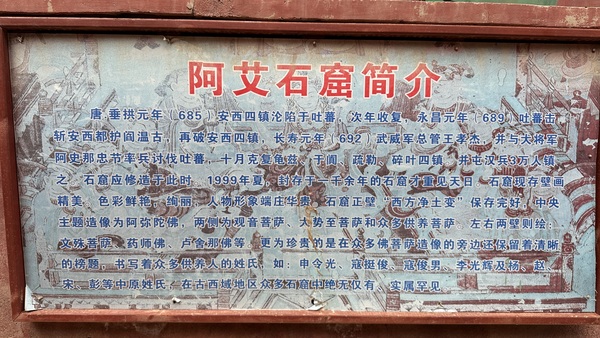 阿艾石窟简介
唐·垂拱元年（685）安西四镇沦陷于吐蕃，次年收复，永昌元年（689）吐蕃击
斩安西都护阎温古，再破安西四镇，长寿元年（692）武威军总管王孝杰，并与大将军
阿史那忠节率兵讨伐吐蕃，十月克复龟兹、于阗、疏勒、碎叶四镇，并屯汉兵3万人镇
之，石窟应修造于此时，1999年夏，封存于一千余年的石窟才重见天日，石窟现存壁画
精美，色彩鲜艳，绚丽，人物形象端庄华贵，石窟正壁"西方净土变"保存完好，中央
主题造像为阿弥陀佛，两侧为观音菩萨、大势至菩萨和众多供养菩萨，左右两壁则绘：
文殊菩萨、药师佛、卢舍那佛等，更为珍贵的是在众多佛菩萨造像的旁边还保留着清晰
的榜题，书写着众多供养人的姓氏，如：申令光、寇挺俊、寇俊男、李光辉及杨、赵、
宋、彭等中原姓氏，在古西域地区众多石窟中绝无仅有，实属罕见。